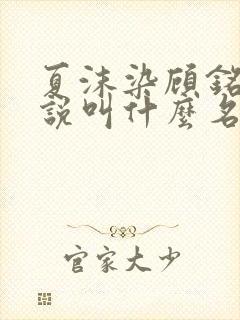 夏沫染顾銘
說叫什麼名
官家大少